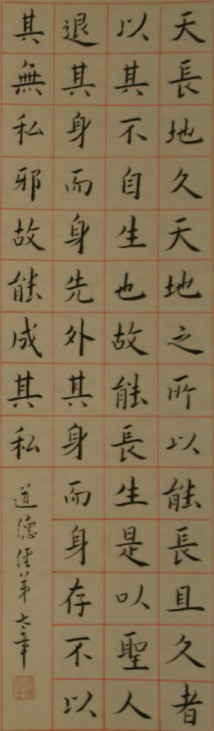 天長地久天地之所以能長且久者
以其不自生也故能長生是以聖人
退其身而身先外其身而身存不以
其無私邪故能成其私
道德經第七章